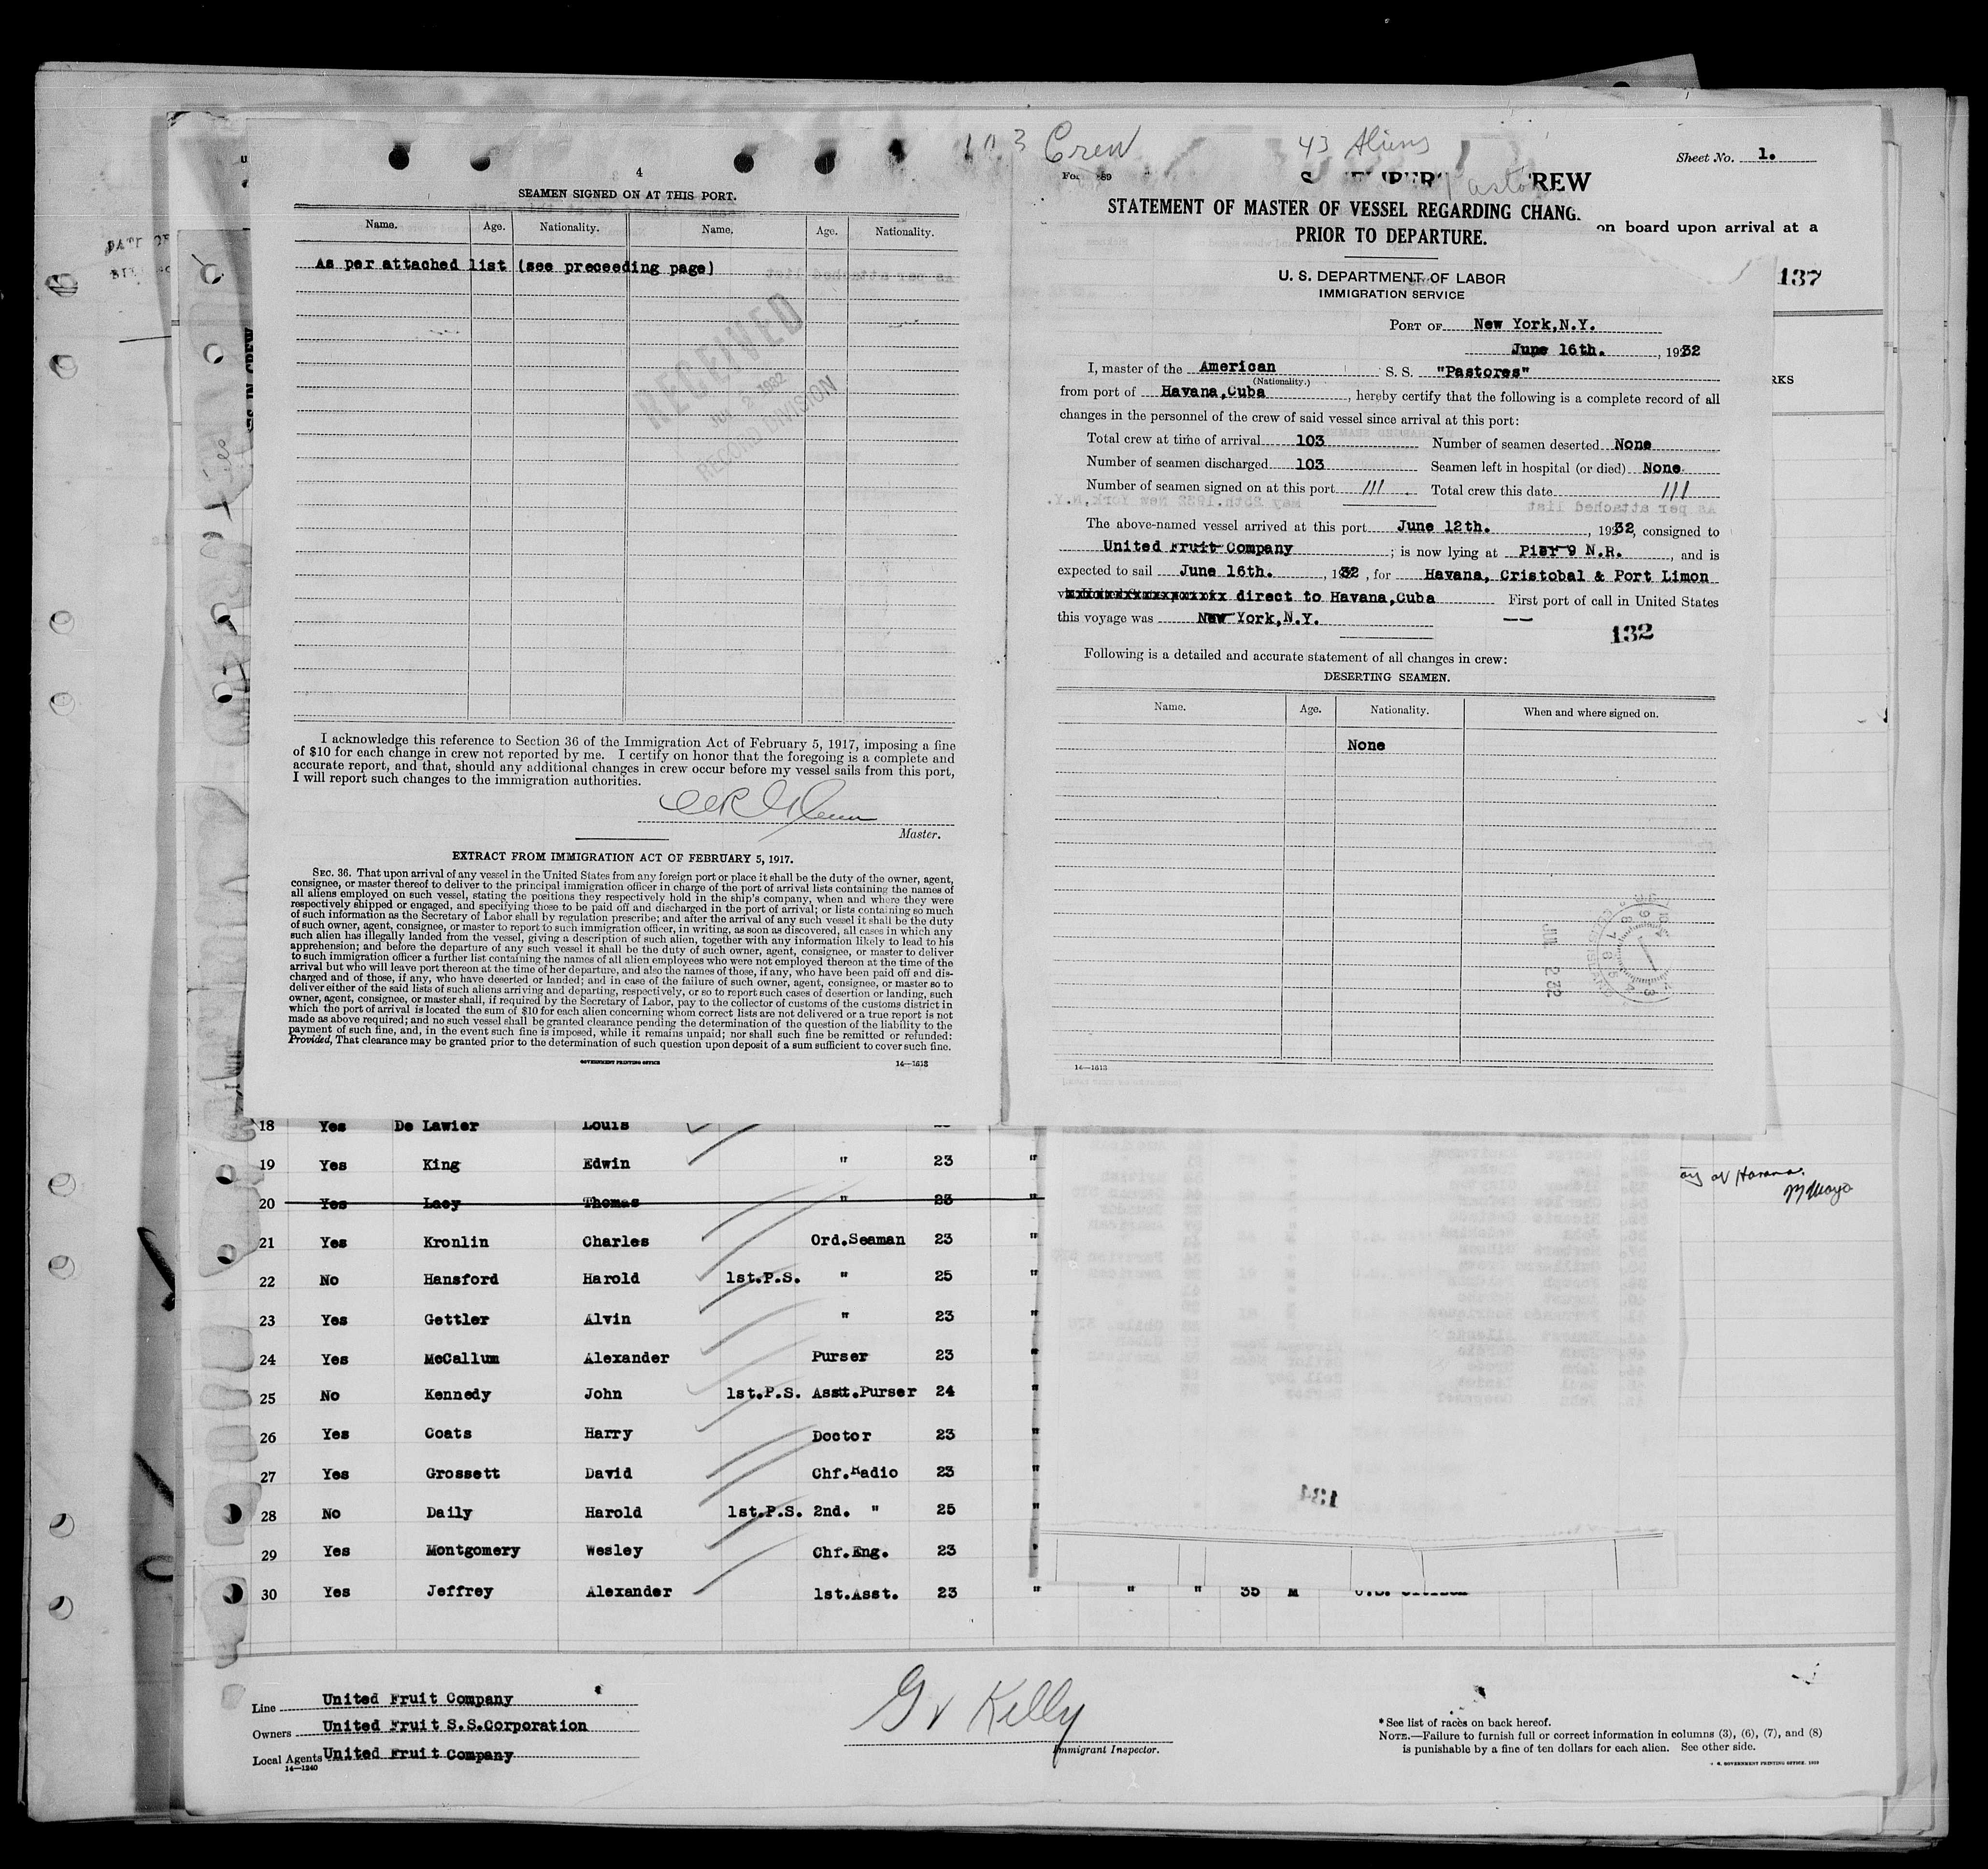 103 Crew
43 Aliens
Sheet No. 1.
4
SEAMEN SIGNED ON AT THIS PORT.
Name. Age. Nationality. Name. Age. Nationality.
As per attached list (see preceeding page)
RECEIVED
2 1932
RECORD DIVISION
I acknowledge this reference to Section 36 of the Immigration Act of February 5, 1917, imposing a fine
of $10 for each change in crew not reported by me. I certify on honor that the foregoing is a complete and
accurate report, and that, should any additional changes in crew occur before my vessel sails from this port,
I will report such changes to the immigration authorities.
Master.
EXTRACT FROM IMMIGRATION ACT OF FEBRUARY 5, 1917.
SEC. 36. That upon arrival of any vessel in the United States from any foreign port or place it shall be the duty of the owner, agent,
consignee, or master thereof to deliver to the principal immigration officer in charge of the port of arrival lists containing the names of
all aliens employed on such vessel, stating the positions they respectively hold in the ship's company, when and where they were
respectively shipped or engaged, and specifying those to be paid off and discharged in the port of arrival; or lists containing so much
of such information as the Secretary of Labor shall by regulation prescribe; and after the arrival of any such vessel it shall be the duty
of such owner, agent, consignee, or master to report to such immigration officer, in writing, as soon as discovered, all cases in which any
such alien has illegally landed from the vessel, giving a description of such alien, together with any information likely to lead to his
apprehension; and before the departure of any such vessel it shall be the duty of such owner, agent, consignee, or master to deliver
to such immigration officer a further list containing the names of all alien employees who were not employed thereon at the time of the
arrival but who will leave port thereon at the time of her departure, and also the names of those, if any, who have been paid off and dis-
charged and of those, if any, who have deserted or landed; and in case of the failure of such owner, agent, consignee, or master so to
deliver either of the said lists of such aliens arriving and departing, respectively, or so to report such cases of desertion or landing, such
owner, agent, consignee, or master shall, if required by the Secretary of Labor, pay to the collector of customs of the customs district in
which the port of arrival is located the sum of $10 for each alien concerning whom correct lists are not delivered or a true report is not
made as above required; and no such vessel shall be granted clearance pending the determination of the question of the liability to the
payment of such fine, and, in the event such fine is imposed, while it remains unpaid; nor shall such fine be remitted or refunded:
Provided, That clearance may be granted prior to the determination of such question upon deposit of a sum sufficient to cover such fine.
GOVERNMENT PRINTING OFFICE
14—1613
REW
STATEMENT OF MASTER OF VESSEL REGARDING CHANG
PRIOR TO DEPARTURE.
on board upon arrival at a
137
U. S. DEPARTMENT OF LABOR
IMMIGRATION SERVICE
PORT OF New York,N.Y.
June 16th. , 1932
RKS
I, master of the American S. S. "Pastores"
(Nationality.)
from port of Havana,Cuba , hereby certify that the following is a complete record of all
changes in the personnel of the crew of said vessel since arrival at this port:
Total crew at time of arrival 103 Number of seamen deserted None
Number of seamen discharged 103 Seamen left in hospital (or died) None
Number of seamen signed on at this port 111 . Total crew this date 111
The above-named vessel arrived at this port June 12th. , 1932, consigned to
United Fruit Company ; is now lying at Pier 9 N.R. , and is
expected to sail June 16th. , 1932 , for Havana, Cristobal & Port Limon
direct to Havana,Cuba First port of call in United States
this voyage was New York,N.Y.
132
Following is a detailed and accurate statement of all changes in crew:
DESERTING SEAMEN.
Name. Age. Nationality. When and where signed on.
None
14—1613
18 Yes De Lawier Louis
19 Yes King Edwin " 23 "
20 Yes Lacy Thomas " 23 "
21 Yes Kronlin Charles Ord.Seaman 23 "
22 No Hansford Harold 1st.P.S. " 25 "
23 Yes Gettler Alvin " 23 "
24 Yes McCallum Alexander Purser 23 "
25 No Kennedy John 1st.P.S. Asst.Purser 24 "
26 Yes Coats Harry Doctor 23 "
27 Yes Grossett David Chf.Radio 23 "
28 No Daily Harold 1st.P.S. 2nd. " 25 "
29 Yes Montgomery Wesley Chf.Eng. 23 "
30 Yes Jeffrey Alexander 1st.Asst. 23 " " " 35 M U.S. Citizen
134
Line United Fruit Company
Owners United Fruit S.S.Corporation
Local Agents United Fruit Company
14—1240
G V Kelly
Immigrant Inspector.
* See list of races on back hereof.
NOTE.—Failure to furnish full or correct information in columns (3), (6), (7), and (8)
is punishable by a fine of ten dollars for each alien. See other side.